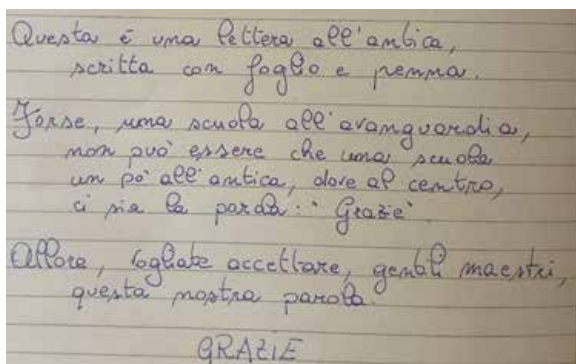 Questa è una lettera all'antica,
scritta con foglio e penna.
Forse, una scuola all'avanguardia,
non può essere che una scuola
un pò all'antica, dove al centro,
ci sia la parola: "Grazie".
Allora, vogliate accettare, gentili maestri,
questa nostra parola.
GRAZIE